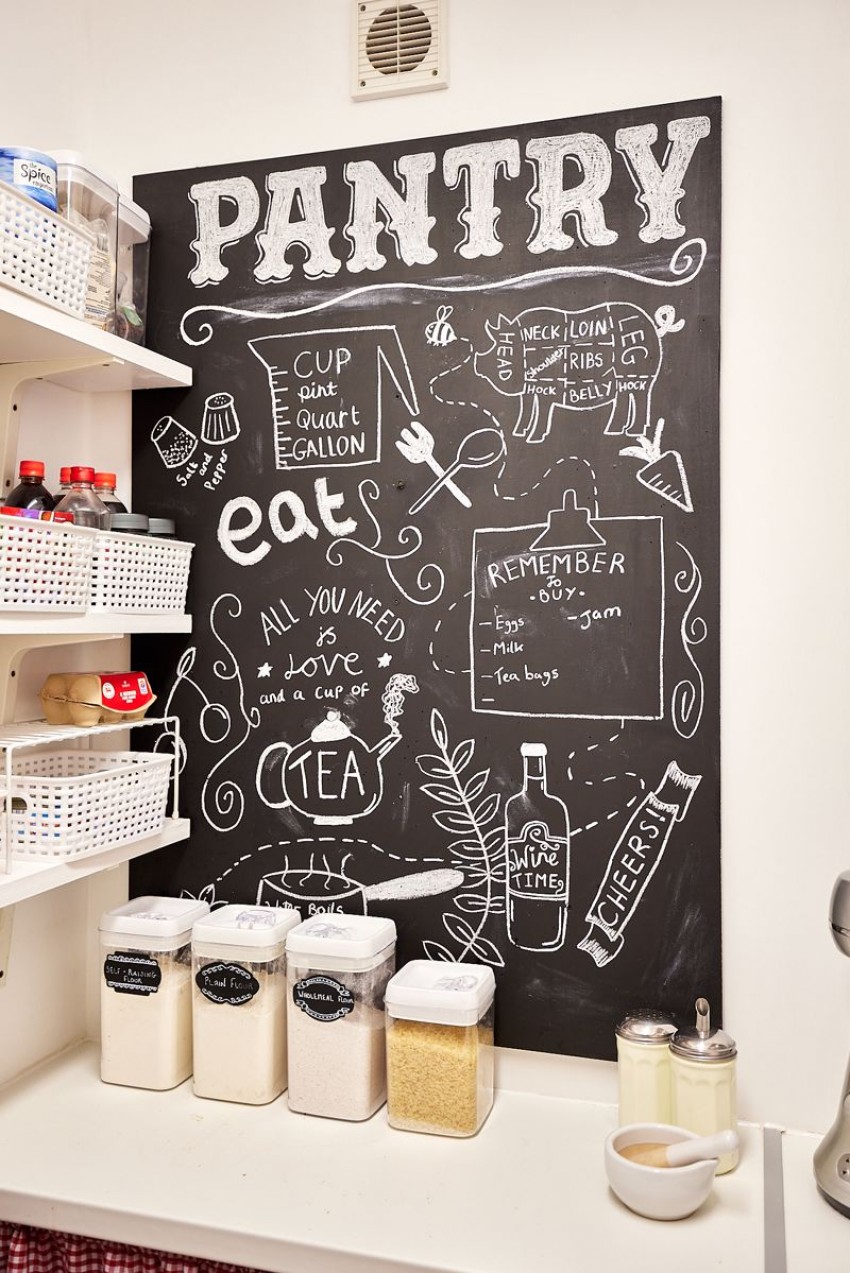 the
Spice
PANTRY
CUP
pint
Quart
GALLON
HEAD
NECK
LOIN
LEG
Shoulder
RIBS
HOCK
BELLY
HOCK
Salt
and
Pepper
eat
REMEMBER
To
-BUY-
-Jam
-Eggs
-Milk
-Tea bags
-
ALL YOU NEED
is
LOVE
and a cup of
TEA
Wine
TIME
CHEERS!
Boils
SELF-RAISING
FLOUR
PLAIN FLOUR
WHOLEMEAL FLOUR